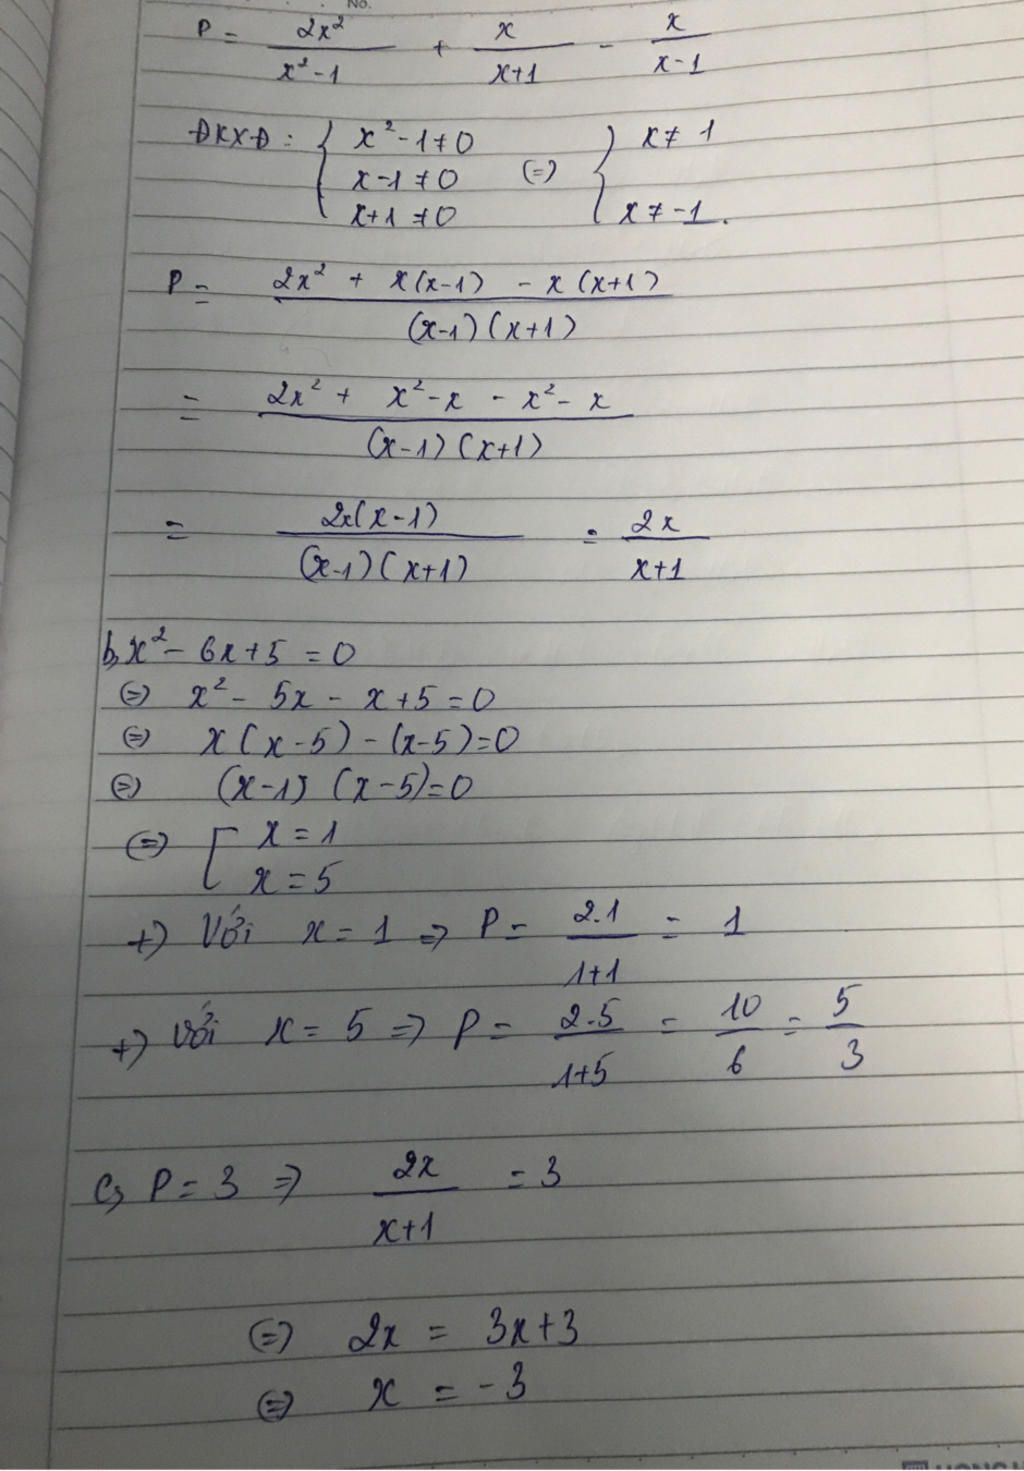 No.
P = 2x²/(x²-1) + x/(x+1) - x/(x-1)
ĐKXĐ: { x²-1≠0 (=) { x≠1
x-1≠0
x+1≠0 x≠-1.
P = (2x² + x(x-1) - x(x+1))/((x-1)(x+1))
= (2x² + x²-x - x²-x)/((x-1)(x+1))
= 2x(x-1)/((x-1)(x+1)) = 2x/(x+1)
b, x² - 6x+5 = 0
(=) x² - 5x - x+5=0
(=) x(x-5) - (x-5)=0
(=) (x-1) (x-5)=0
(=) [ x=1
x=5
+) Với x=1 => P = 2.1/(1+1) = 1
+) Với x = 5 => P = 2.5/(1+5) = 10/6 = 5/3
c, P=3 => 2x/(x+1) = 3
(=) 2x = 3x+3
(=) x = -3